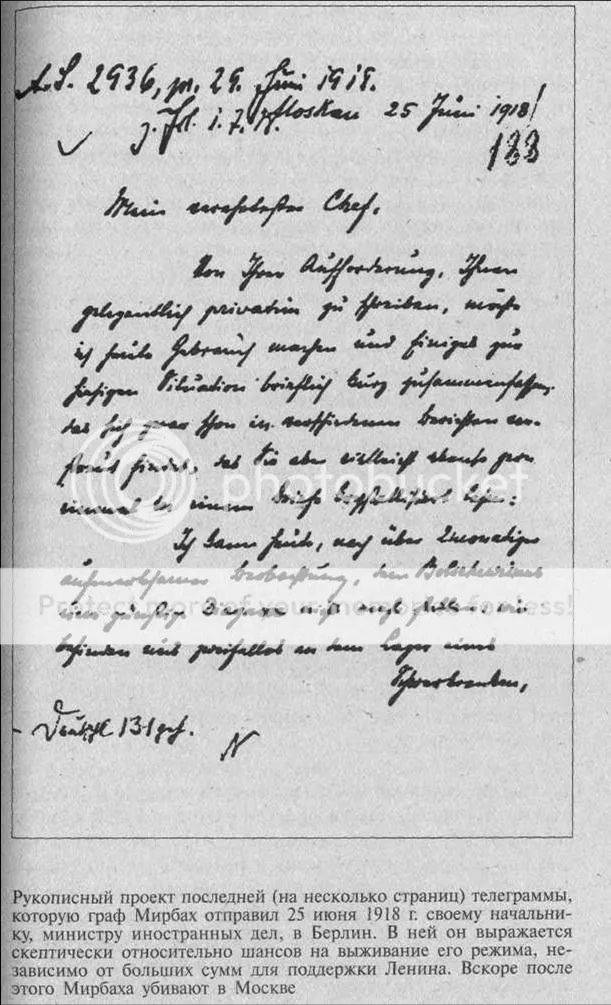 A.S. 2936, pr. 29. Juni 1918.
Moskau 25 Juni 1918!
133
Mein verehrtester Chef,
Von Ihrer Aufforderung, Ihnen
gelegentlich privatim zu schreiben, möchte
ich heute Gebrauch machen und Einiges zur
hiesigen Situation brieflich kurz zusammenfassen,
das sich zwar schon in verschiedenen Berichten ver-
streut findet, das Sie aber vielleicht ebenso gern
einmal in einem Briefe lesen:
Ich kann heute, nach über 2 monatiger
aufmerksamer Beobachtung, dem Bolschewismus
eine günstige Diagnose nicht mehr stellen. Wir
befinden uns zweifellos an dem Lager eines
Schwerkranken,
photobucket
Protect more of your memories for less!
Рукописный проект последней (на несколько страниц) телеграммы,
которую граф Мирбах отправил 25 июня 1918 г. своему начальни-
ку, министру иностранных дел, в Берлин. В ней он выражается
скептически относительно шансов на выживание его режима, не-
зависимо от больших сумм для поддержки Ленина. Вскоре после
этого Мирбаха убивают в Москве